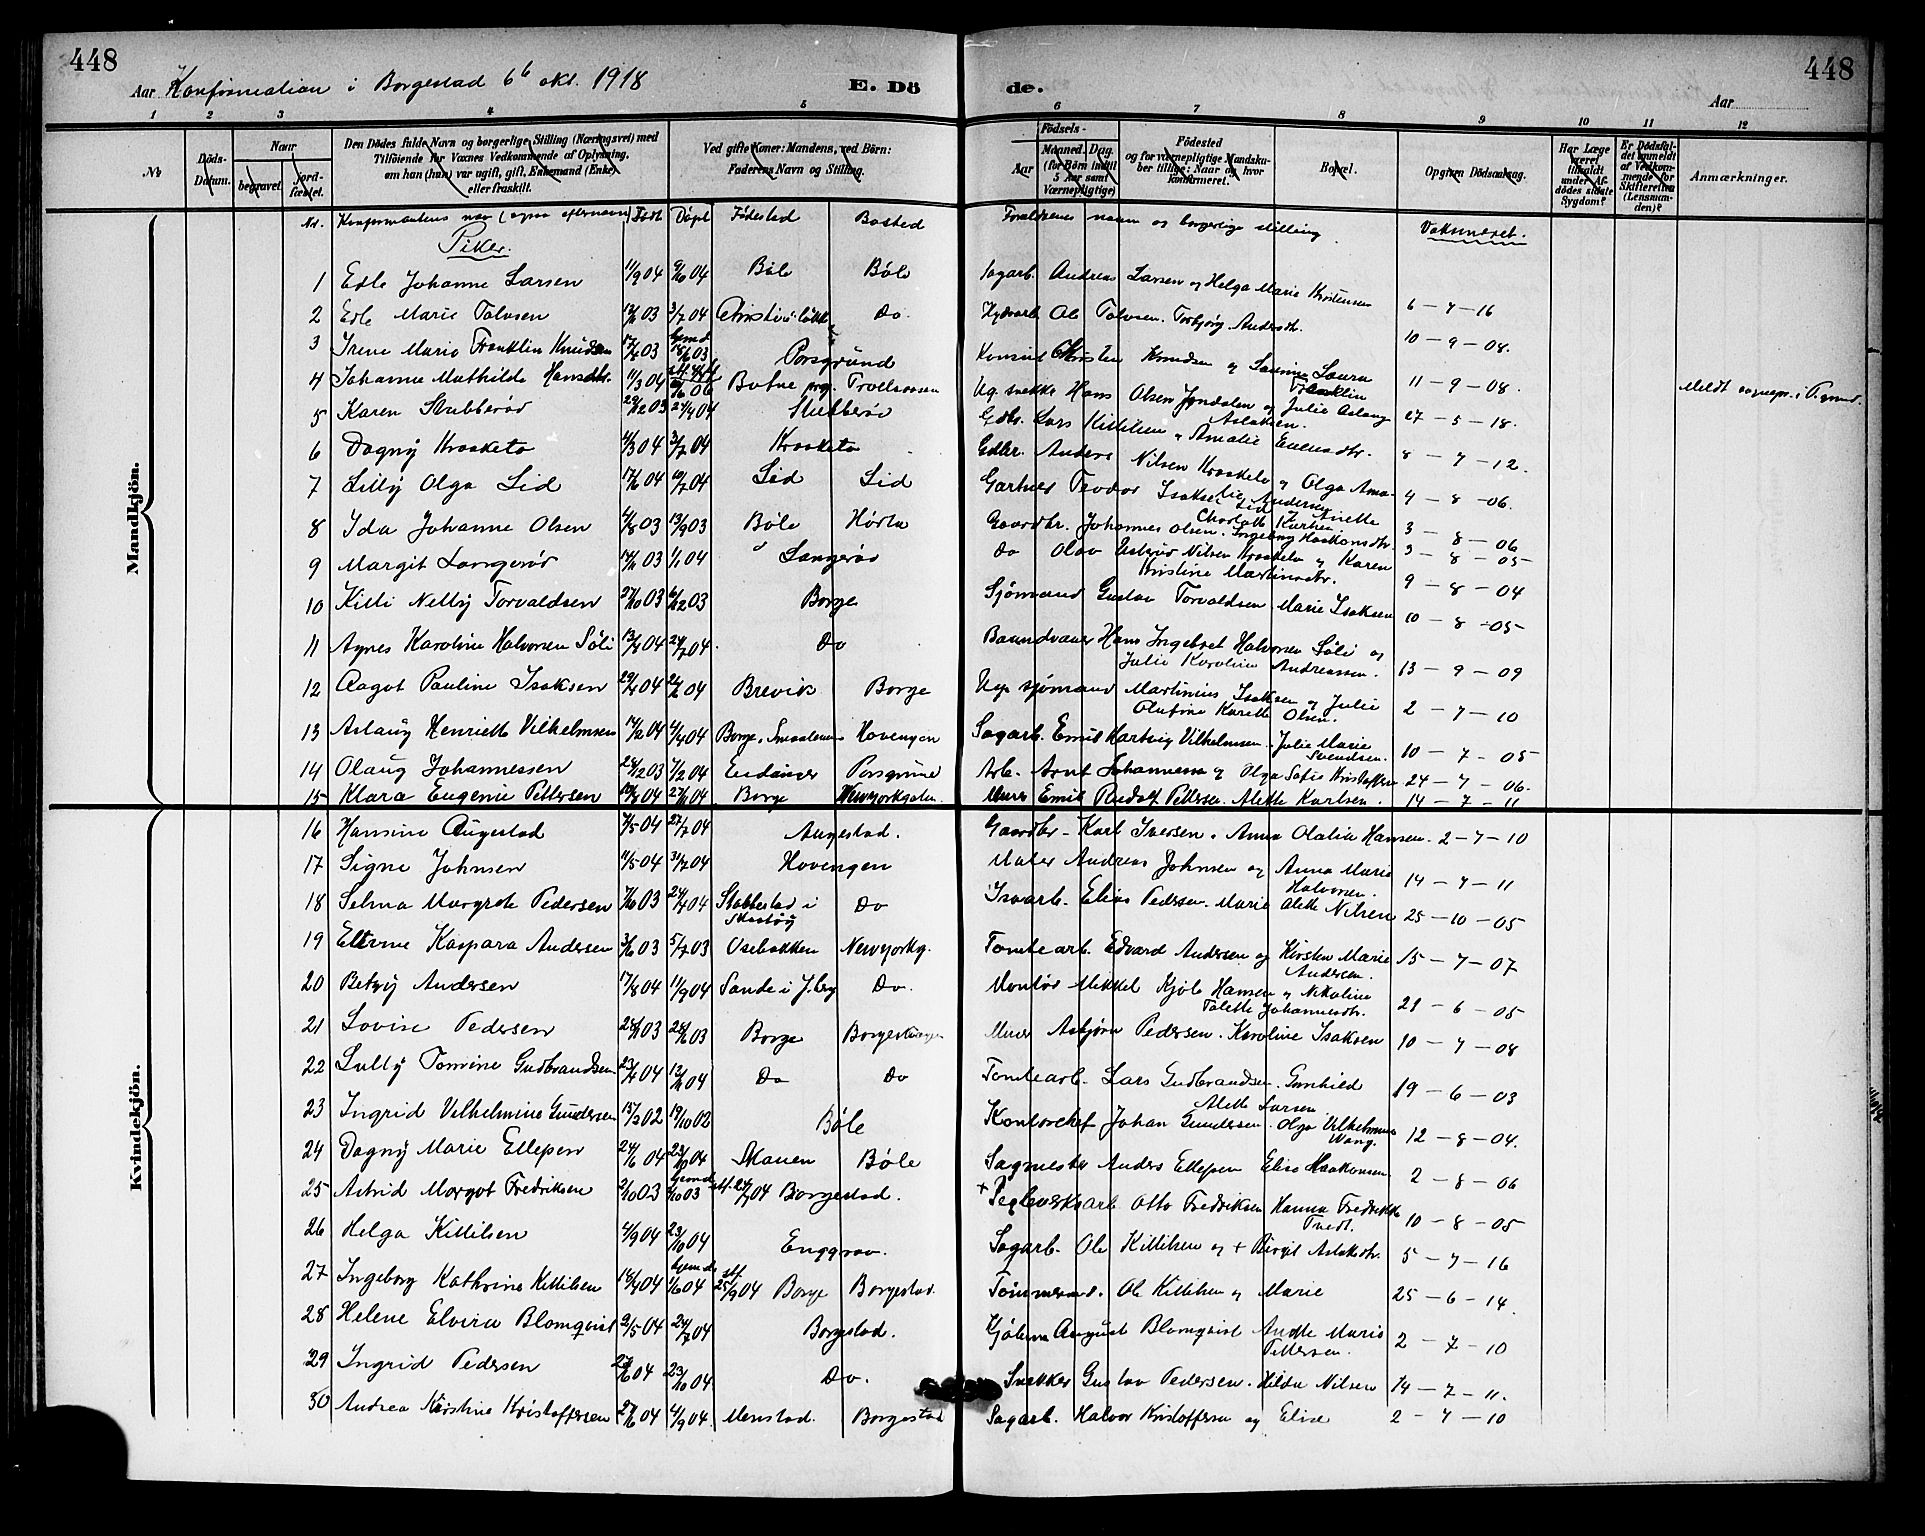 448
448
Aar Konfirmation i Borgestad 6te okt. 1918
E. Dö
de.
Aar
1 2 3 4 5 6 7 8 9 10 11 12
No
Döds-Datum.
Naar
begravet. jord-fæstet.
Den Dödes fulde Navn og borgerlige Stilling (Næringsvei) med
Tilföiende for Voxnes Vedkommende af Oplysning,
om han (hun) var ugift, gift, Enkemand (Enke)
eller fraskilt.
Ved gifte Koner: Mandens, ved Börn:
Faderens Navn og Stilling.
Födsels-
Aar Maaned. Dag.
(for Börn indtil
5 Aar samt
Værnepligtige)
Födested
og for værnepligtige Mandska-
ber tillige: Naar og hvor
konfirmeret.
Bopæl.
Opgiven Dödsaarsag.
Har Læge
været
tilkaldt
under Af-
dödes sidste
Sygdom?
Er Dödsfal-
det anmeldt
af Vedkom-
mende for
Skifteretten
(Lensman-
den)?
Anmærkninger.
Mandkjön.
Kvindekjön.
Nr. Konfirmantens navn (ogsaa efternavn) Født Døpt Fødested Bosted Forældrenes navn og borgerlige stilling Vaksineret.
Piker.
1 Edle Johanne Larsen 11/9 04 9/10 04 Bøle Bøle Sagarb. Andreas Larsen og Helga Marie Kristensen 6 - 7 - 16
2 Edle Marie Tolvsen 03 3/7 04 Do. Ole Tolvsen. Torbjørg Andersdtr. 10 - 9 - 08.
3 Irene Marie Franklin Knudsen 03 hjemd 03 Porsgrund Konsul Knudsen og Laura Franklin 11 - 9 - 08.
4 Johanne Mathilde Hansdtr. 11/3 04 06 Botne prg. Ug. snekke Hans Olsen og Julie Aslaug Aslaksen. 27 - 5 - 18. Meldt sognepr. i P.grund.
5 Karen Stubberød 29/12 03 24/4 04 Stubberød Gdbr. Lars Kittilsen og Amalie 8 - 7 - 12.
6 Dagny Kraaketo 4/3 04 3/7 04 Kraaketo Gdbr. Anders Nilsen Kraaketo og Olga Amalie Andersen 4 - 8 - 06.
7 Lilly Olga Lid 17/6 04 10/7 04 Lid Lid Gartner Teodor Isaksen Lid og Anette Charlotte 3 - 8 - 06
8 Ida Johanne Olsen 4/8 03 13/9 03 Bøle Hørta Gaardbr. Johannes Olsen. Ingeborg Haakonsdtr. 3 - 8 - 05
9 Margit Langerød 03 1/1 04 Langerød Do Olav Nilsen Kraaketo og Karen Kristine Martinsdtr. 9 - 8 - 04
10 Kitti Nelly Torvaldsen 27/10 03 6/12 03 Borge Sjømand Gustav Torvaldsen Marie Isaksen 10 - 8 - 05
11 Agnes Karoline Halvorsen Søli 13/4 04 24/7 04 Do Hans Ingebret Halvorsen Søli og Julie Karoline Andreassen. 13 - 9 - 09
12 Aagot Pauline Isaksen 29/4 04 04 Brevik Borge Ug. sjømand Martinius Isaksen og Julie Olufine Karette Olsen. 2 - 7 - 10
13 Aslaug Henriette Vilhelmsen 14/2 04 4/4 04 Borge, Smaalenene Hovengen Sagarb. Emil Hartvig Vilhelmsen. Julie Marie Svendsen. 10 - 7 - 05
14 Olaug Johannessen 24/12 03 7/2 04 Eidanger Porsgrund Arb. Arnt Johannessen og Olga Sofie Kristoffersen 24 - 7 - 06.
15 Klara Eugenie Pettersen 04 27/11 04 Borge Newyorkgaten. Murer Emil Rudolf Pettersen. Alette Karlsen. 14 - 7 - 11
16 Hansine Augestad 7/5 04 27/7 04 Augestad. Gaardbr - Karl Iversen. Anna Olalia Hansen. 2 - 7 - 10
17 Signe Johnsen 11/5 04 31/7 04 Hovengen Maler Andreas Johnsen og Anna Marie Halvorsen. 14 - 7 - 11
18 Selma Margrete Pedersen 7/10 03 24/4 04 Stabbestad i Skaatøy Do Isarb. Elias Pedersen. Marie Alette Nilsen 25 - 10 - 05
19 Kaspara Andersen 3/6 03 5/7 03 Osebakken Newyorkg. Tomtearb. Edvard Andersen og Kirsten Marie Andersen. 15 - 7 - 07
20 Betsy Andersen 17/8 04 11/9 04 Sande i J.berg Do. Montør Mikkel Kjøle Hansen og Nikoline Talette Johannesdtr. 21 - 6 - 05
21 Lovise Pedersen 03 03 Borge Murer Asbjørn Pedersen. Karoline Isaksen 10 - 7 - 08
22 Lully Tomine Gudbrandsen 23/4 04 12/6 04 Do Do Tomtearb. Lars Gudbrandsen. Gunhild Alette Larsen 19 - 6 - 03
23 Ingrid Vilhelmine Gundersen 15/3 02 19/10 02 Bøle Kontorchef Johan Gundersen. Olga Vilhelmine Wang. 12 - 8 - 04.
24 Dagny Marie Ellefsen 24/6 04 23/10 04 Skauen Bøle Sagmester Anders Ellefsen Elise Haakonsen 2 - 8 - 06
25 Astrid Margot Fredriksen 2/10 03 hjemd 6/10 03 stf. 24/7 04 Borgestad. + Teglverksarb Otto Fredriksen Hanna Fredrikke Tvedt. 10 - 8 - 05
26 Helga Kittilsen 4/9 04 23/10 04 Enggrav. Sagarb. Ole Kittilsen og + Birgit Aslaksdtr. 5 - 7 - 16
27 Ingeborg Kathrine Kittilsen 18/4 04 hjemd. 1/6 04 stf 25/9 04 Borge Borgestad. Tømmermd. Ole Kittilsen og Marie 25 - 6 - 14.
28 Helene Elvira Blomqvist 2/5 04 24/7 04 Borgestad. August Blomqvist Andte Marie Pettersen. 2 - 7 - 10
29 Ingrid Pedersen 04 23/10 04 Do. Snekker Gustav Pedersen. Hilda Nilsen 14 - 7 - 11.
30 Andrea Kirstine Kristoffersen 27/6 04 4/9 04. Menstad. Borgestad Sagarb. Halvor Kristoffersen og Elise 2 - 7 - 10